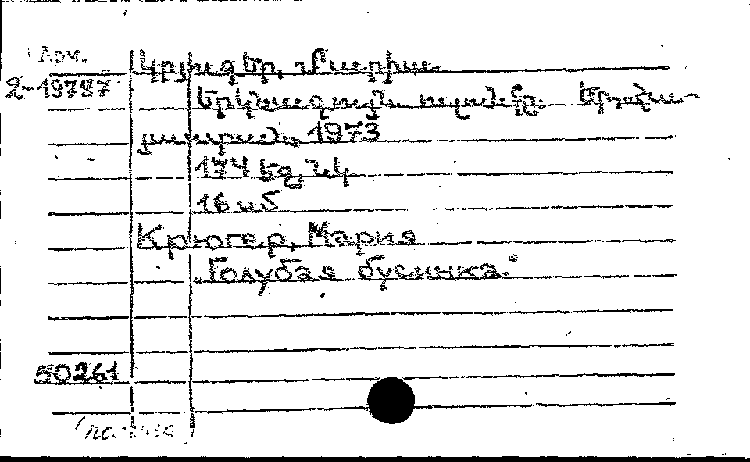 Лом.
2-19787
Կրյուգեր, Մարիա
Երկնագույն ուլունքը. Եր., Հա-
յաստան, 1973
174 էջ, նկ
16 սմ
Крюгер, Мария
„Голубая бусинка."
50261